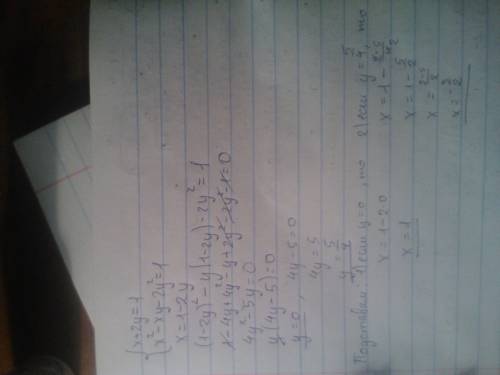 {x+2y=1
{x²-xy-2y²=1
x=1-2y
(1-2y)²-y(1-2y)-2y²=1
1-4y+4y²-y+2y²-2y²-1=0
4y²-5y=0
y(4y-5)=0
y=0, 4y-5=0
4y=5
y=5/4
Подставим: 1) если y=0, то
x=1-2·0
x=1
2) если y=5/4, то
x=1-2·5/4
x=1-5/2
x=2-5/2
x=3/2